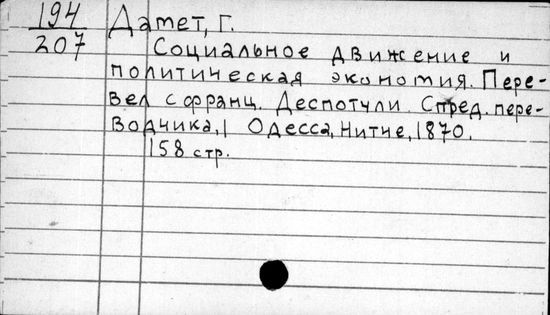 194
207
Дамет, Г.
Социальное движение и
политическая экономия. Пере-
вел с франц. Деспотули С пред. пере-
водчика,| Одесса, Нитче, 1870.
158 стр.